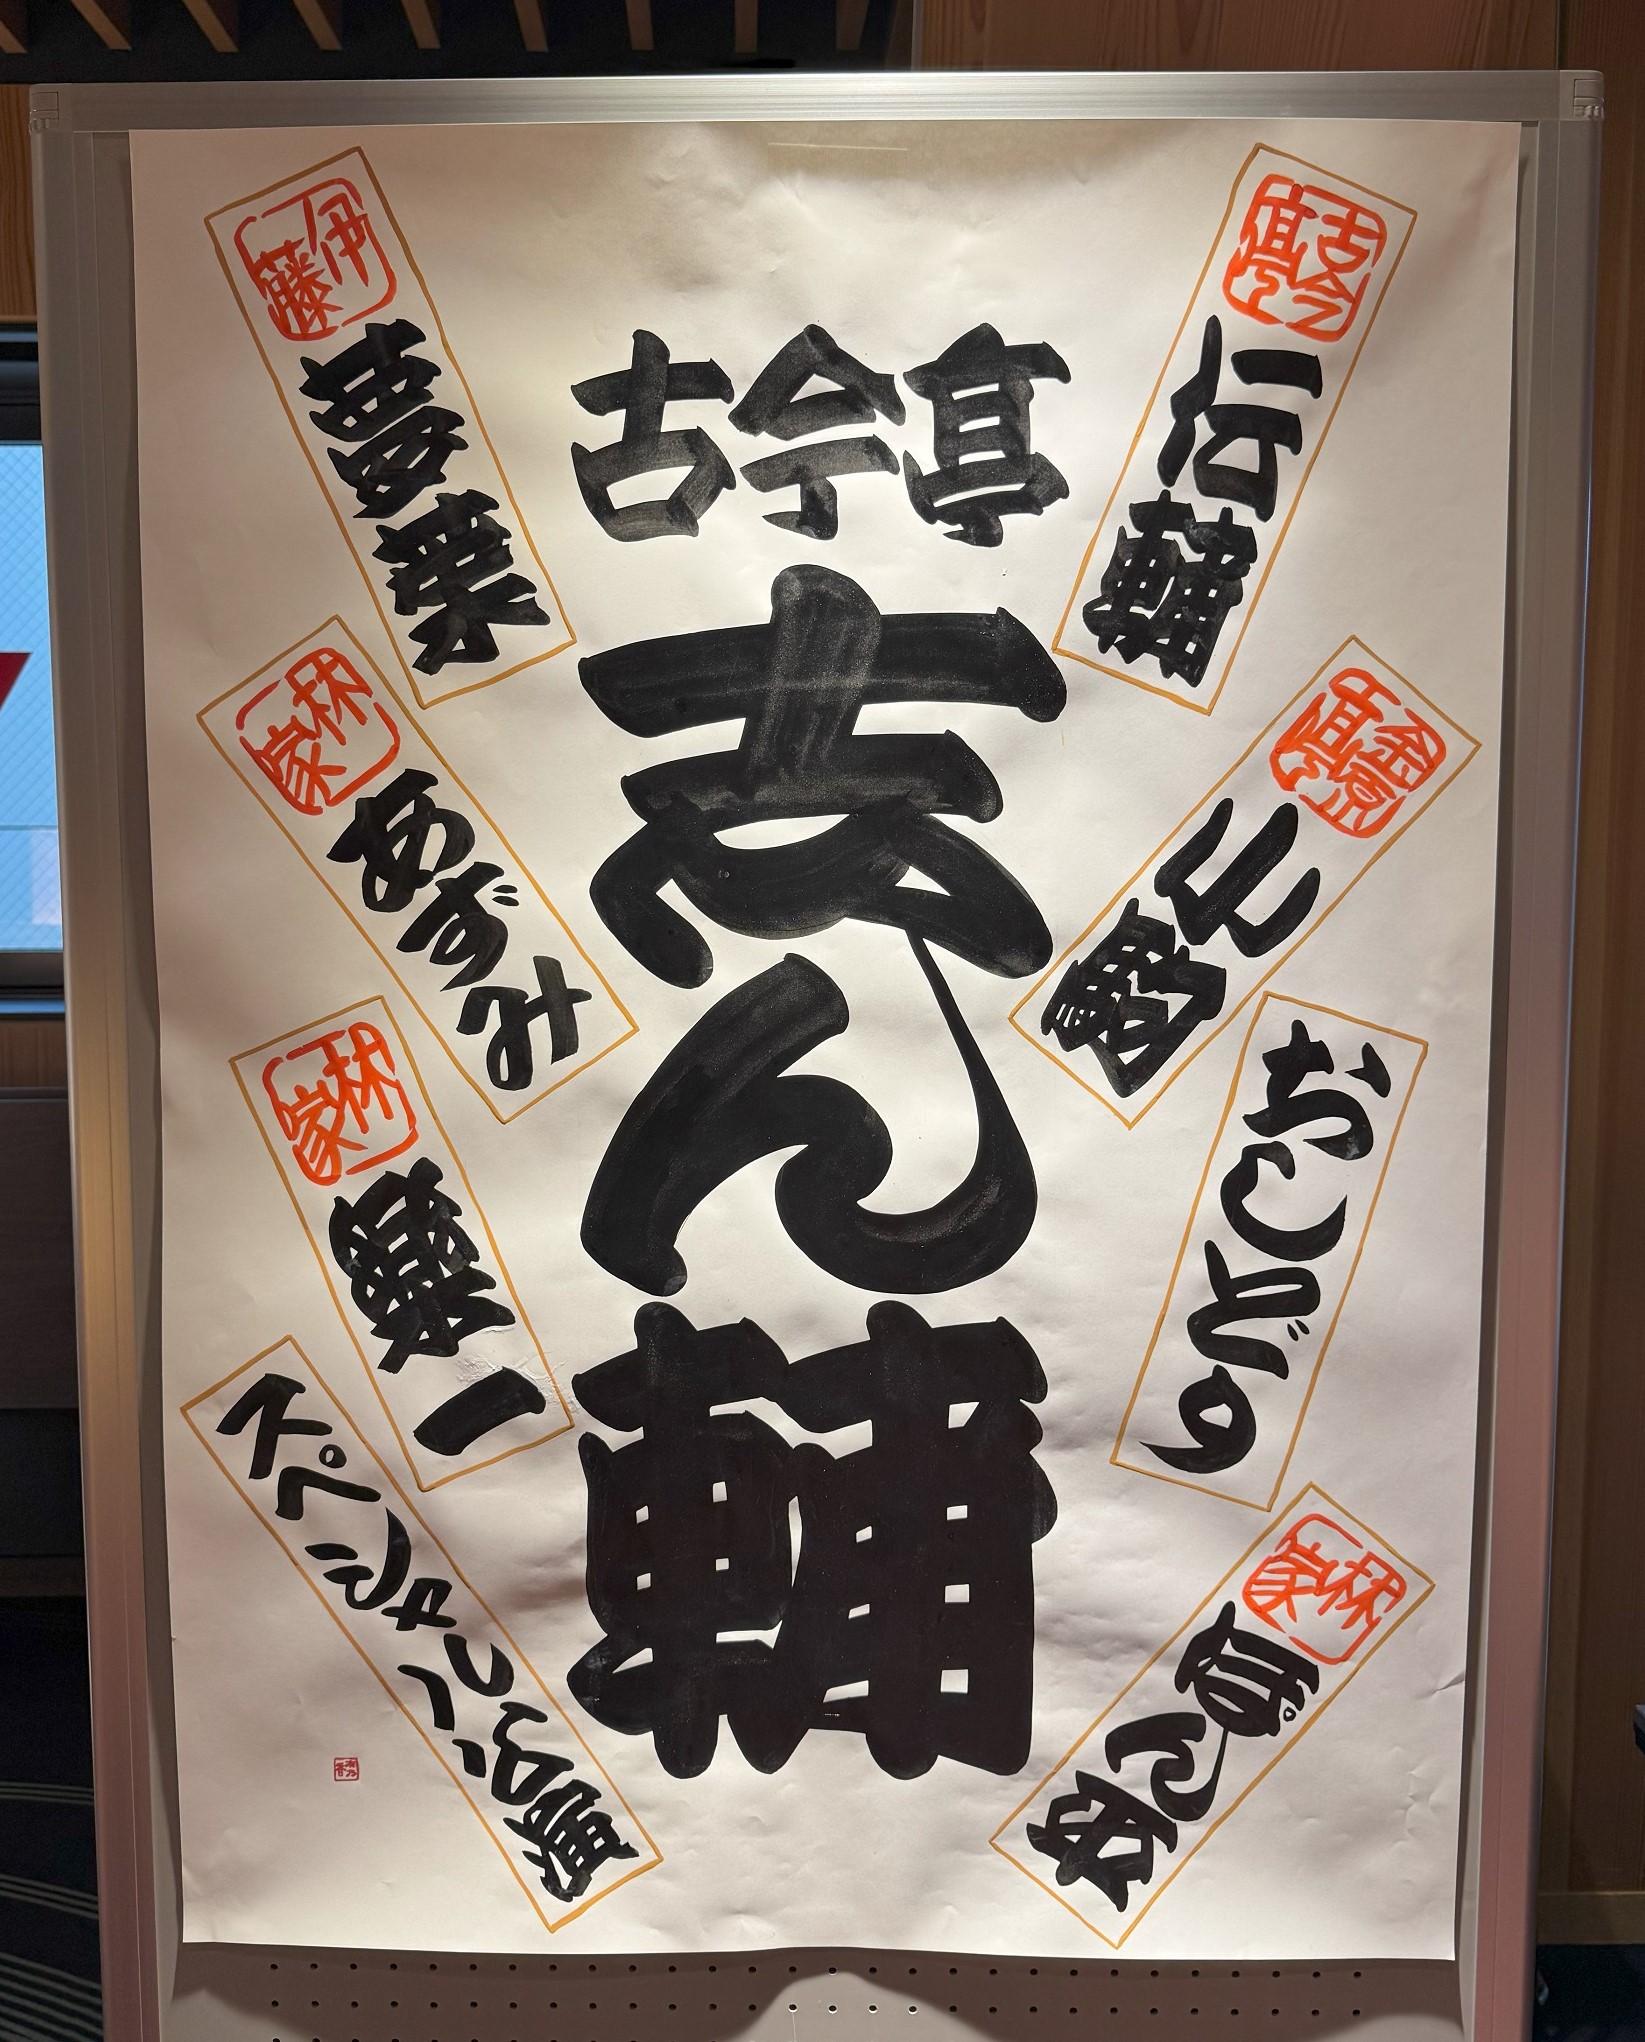 古今亭
志ん輔
古今亭 伝輔
金原亭 小駒
おしどり
林家 ぽん平
伊藤 夢葉
林家 あずみ
林家 楽一
スペシャル公演